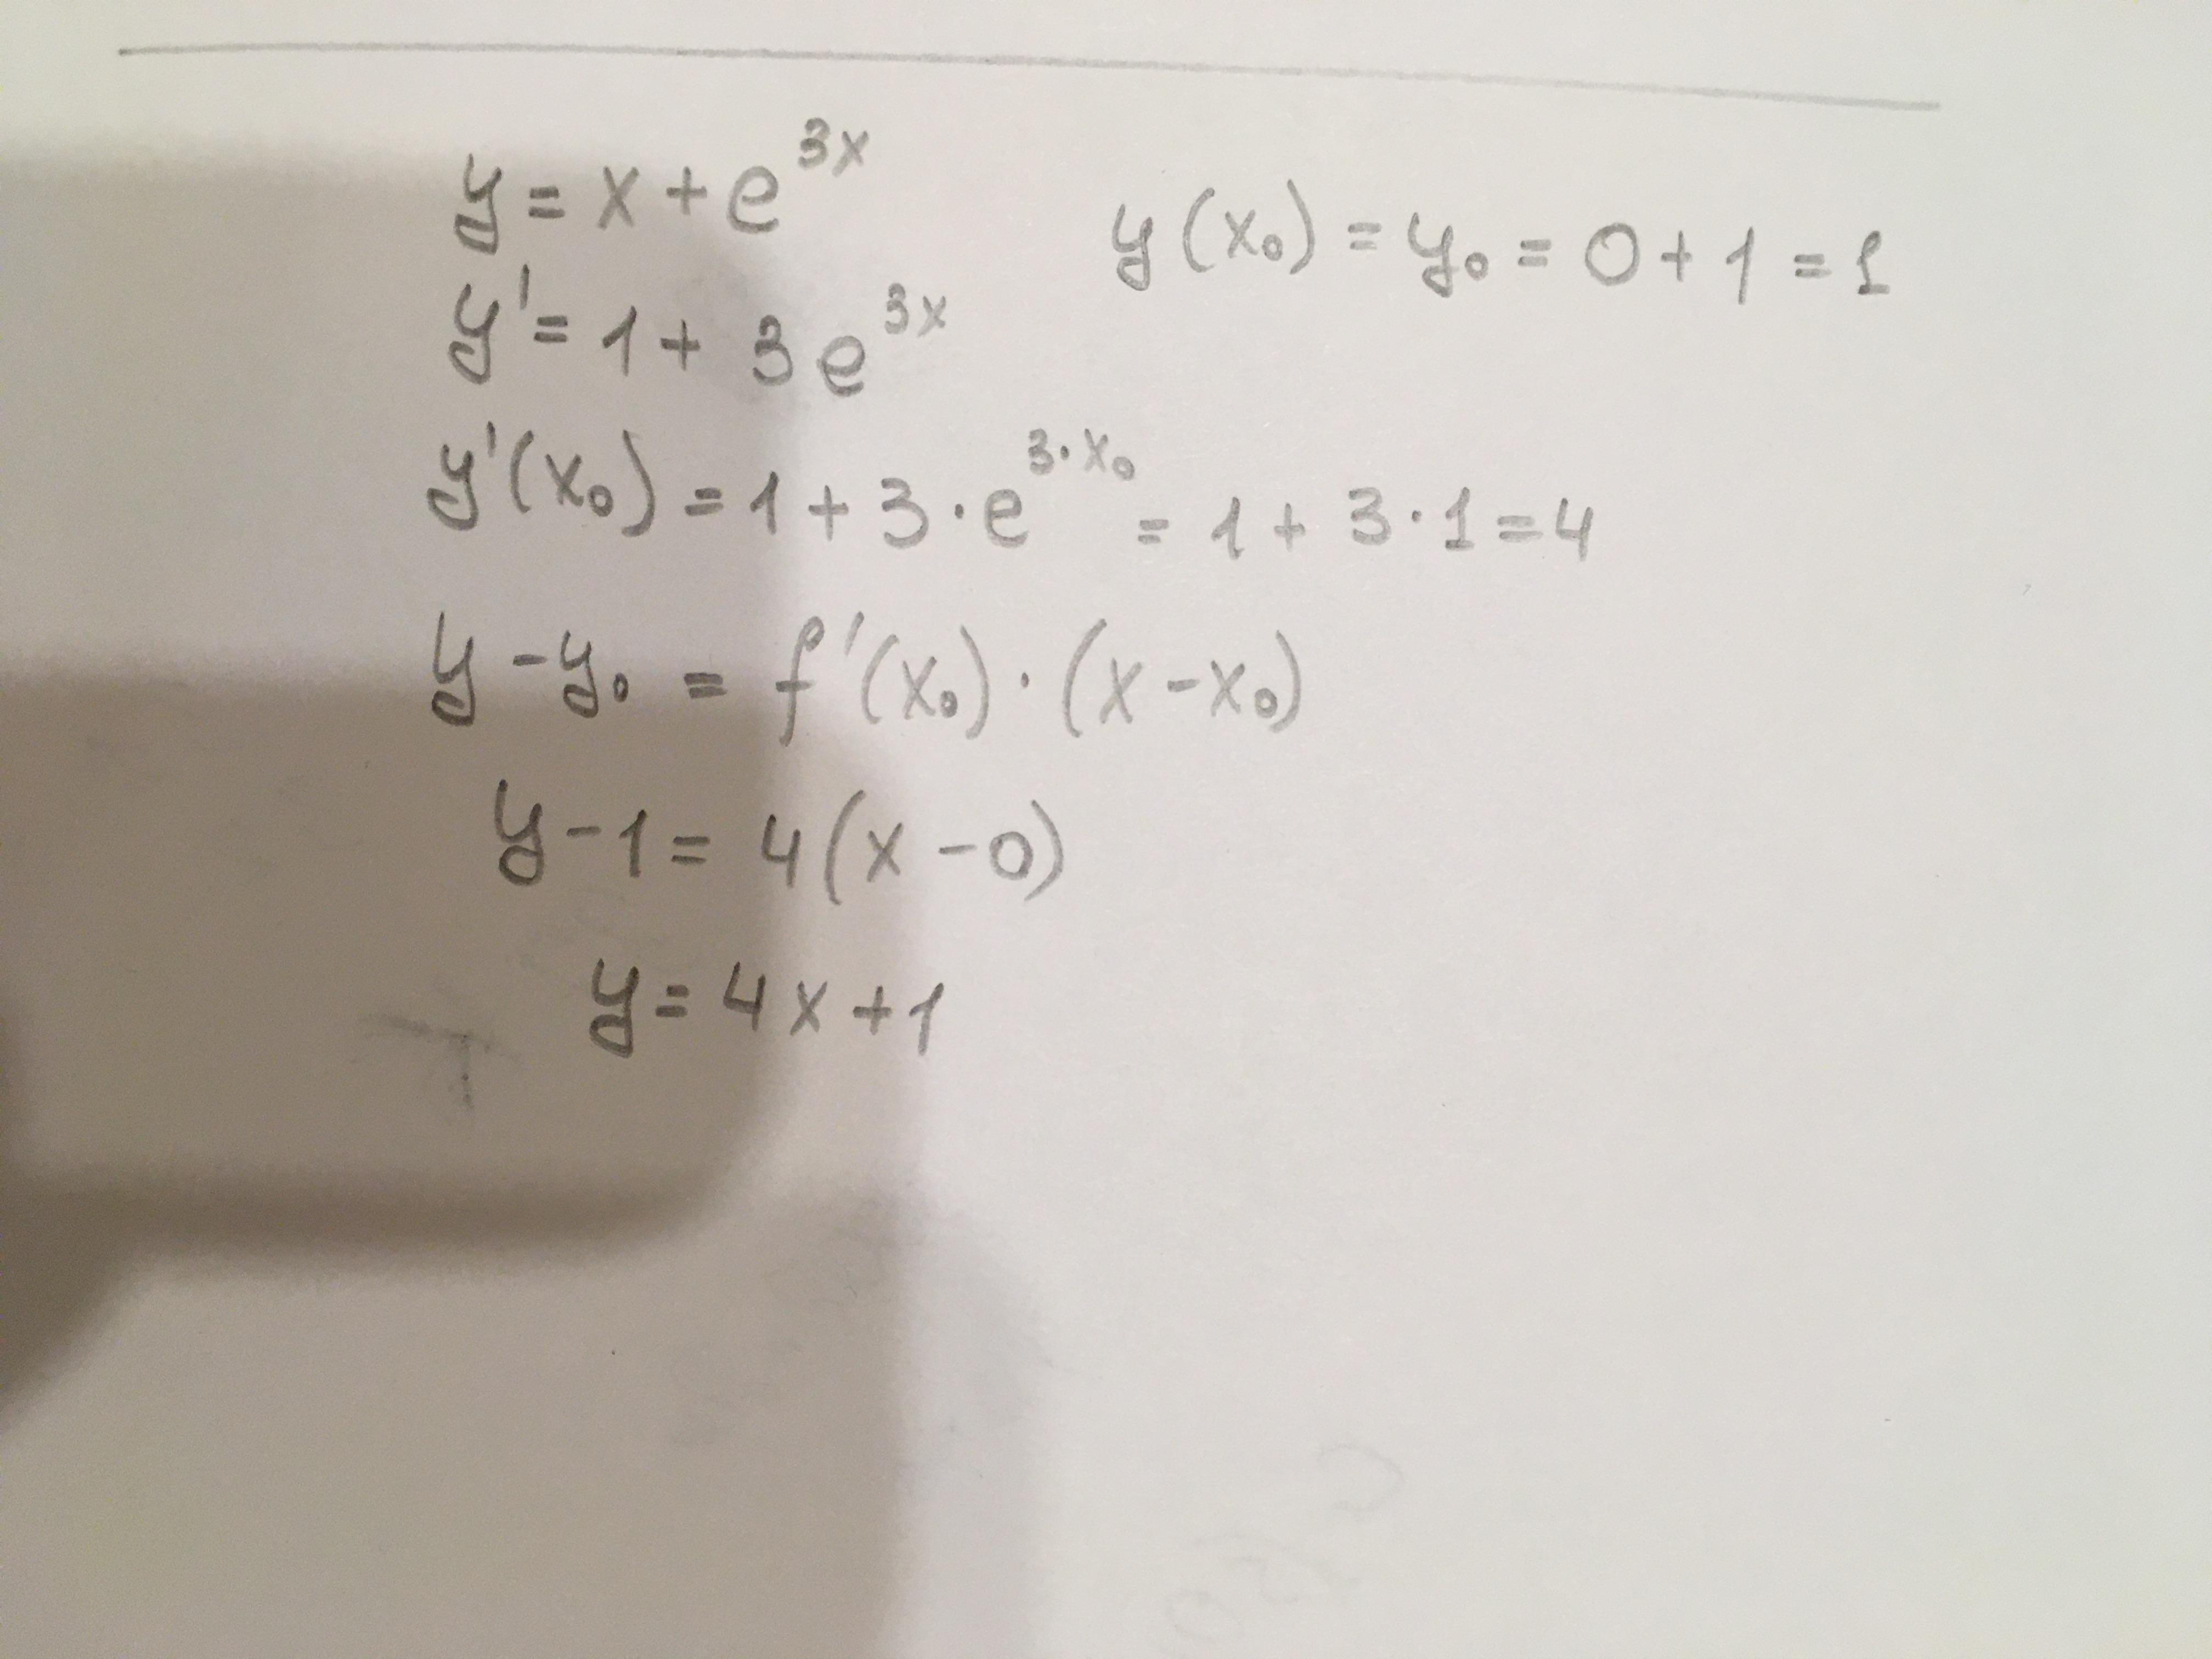 y = x + e^{3x}
y(x₀) = y₀ = 0 + 1 = 1
y' = 1 + 3e^{3x}
y'(x₀) = 1 + 3 · e^{3·x₀} = 1 + 3 · 1 = 4
y - y₀ = f'(x₀) · (x - x₀)
y - 1 = 4(x - 0)
y = 4x + 1